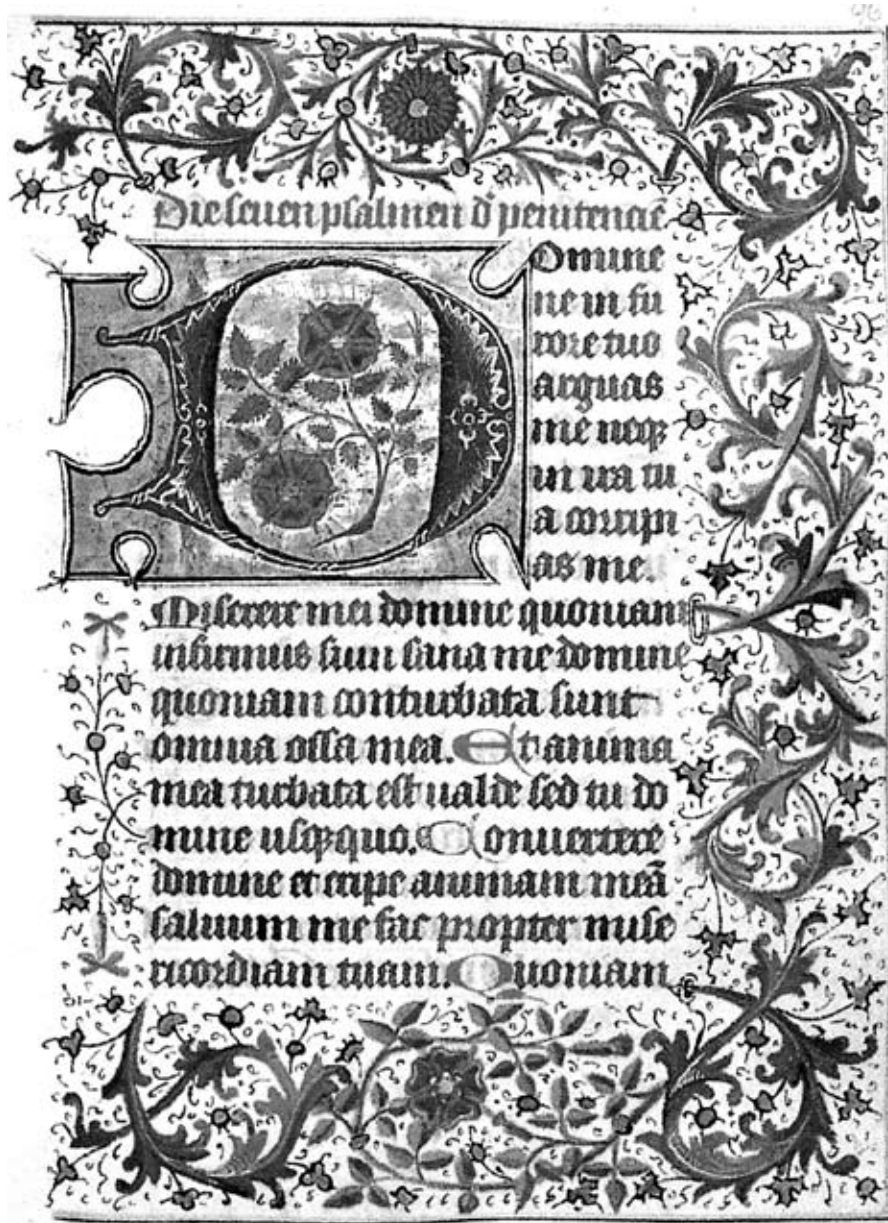 Die seuen psalmen d' penitencie
Domine
ne in fu
rore tuo
arguas
me neqz
in ira tu
a corripi
as me.
Miserere mei domine quoniam
infirmus sum sana me domine
quoniam conturbata sunt
omnia ossa mea. Et anima
mea turbata est ualde sed tu do
mine usqzquo. Conuertere
domine et eripe animam meā
saluum me fac propter mise
ricordiam tuam. Quoniam